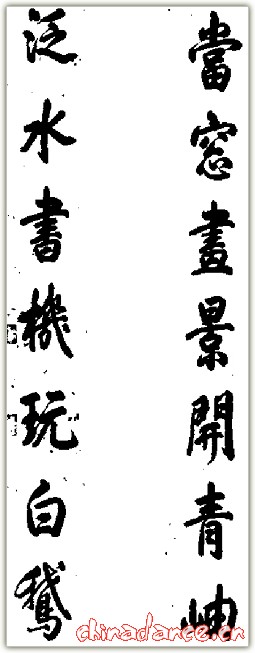 當窓畫景開青岫
泛水書機玩白鵞
chinadance.cn